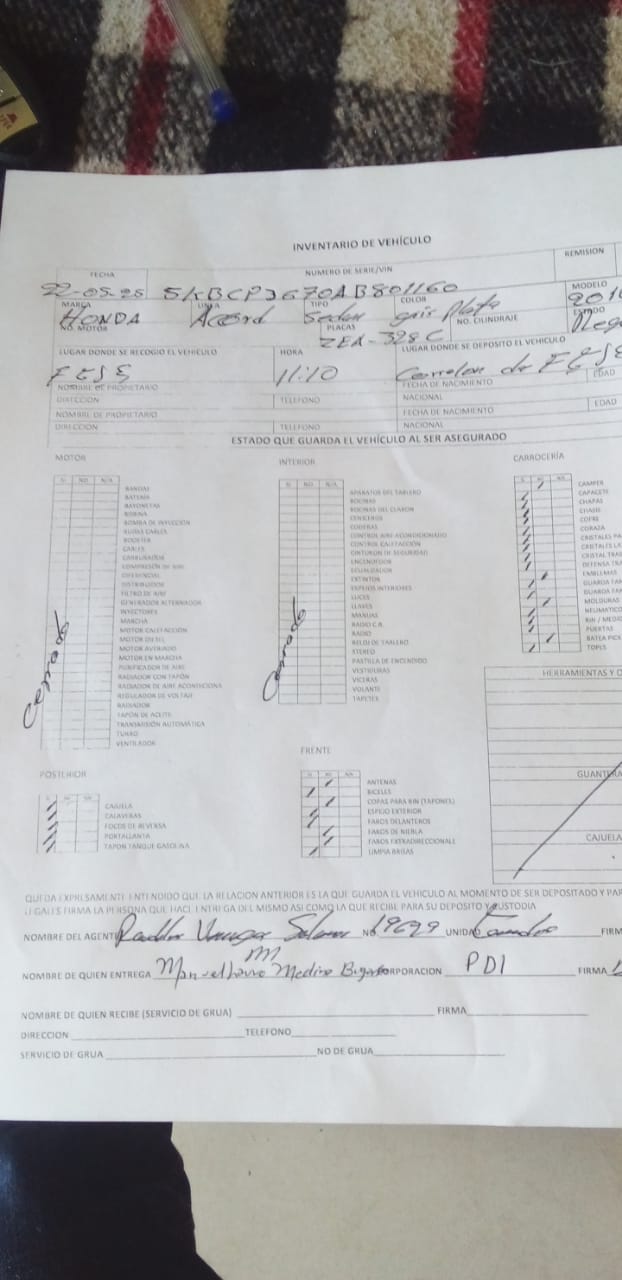 INVENTARIO DE VEHÍCULO
REMISION
FECHA NUMERO DE SERIE/VIN
22-05-25 MODELO
MARCA LINEA TIPO COLOR 2010
HONDA Acord Sedan gris Plata
NO. MOTOR PLACAS NO. CILINDRAJE
ZEA-328C
LUGAR DONDE SE RECOGIO EL VEHICULO HORA LUGAR DONDE SE DEPOSITO EL VEHICULO
11:10 Corralon de
NOMBRE DE PROPIETARIO FECHA DE NACIMIENTO EDAD
DIRECCION TELEFONO NACIONAL
NOMBRE DE PROPIETARIO FECHA DE NACIMIENTO EDAD
DIRECCION TELEFONO NACIONAL
ESTADO QUE GUARDA EL VEHÍCULO AL SER ASEGURADO
MOTOR
SI NO N/A
BANDAS
BATERIA
BAYONETAS
BOBINA
BOMBA DE INYECCION
BUJIAS CABLES
BOOSTER
CABLES
CARBURADOR
COMPRESION DE AIRE
DIFERENCIAL
DISTRIBUIDOR
FILTRO DE AIRE
GENERADOR ALTERNADOR
INYECTORES
MARCHA
MOTOR CALEFACCION
MOTOR DIESEL
MOTOR AVERIADO
MOTOR EN MARCHA
PURIFICADOR DE AIRE
RADIADOR CON TAPÓN
RADIADOR DE AIRE ACONDICIONA
REGULADOR DE VOLTAJE
RADIADOR
TAPON DE ACEITE
TRANSMISIÓN AUTOMÁTICA
TURBO
VENTILADOR
Cerrado
INTERIOR
SI NO N/A
APARATOS DEL TABLERO
BOCINAS
BOCINAS DEL CLAXON
CENICEROS
CODERAS
CONTROL AIRE ACONDICIONADO
CONTROL CALEFACCIÓN
CINTURON DE SEGURIDAD
ENCENDEDOR
ECUALIZADOR
EXTINTOR
ESPEJOS INTERIORES
LUCES
LLAVES
MANIJAS
RADIO C.B.
RADIO
RELOJ DE TABLERO
STEREO
PASTILLA DE ENCENDIDO
VESTIDURAS
VICERAS
VOLANTE
TAPETES
Cerrado
CARROCERÍA
CAMPER
CAPACETE
CHAPAS
CHASIS
COFRE
CORAZA
CRISTALES PA
CRISTALES LA
CRISTAL TRAS
DEFENSA TRA
EMBLEMAS
GUARDA FAN
GUARDA FAN
MOLDURAS
NEUMATICO
RIN / MEDID
PUERTAS
BATEA PICK
TOPES
HERRAMIENTAS Y O
GUANTERA
CAJUELA
POSTERIOR
CAJUELA
CALAVERAS
FOCOS DE REVERSA
PORTALLANTA
TAPON TANQUE GASOLINA
FRENTE
ANTENAS
BICELES
COPAS PARA RIN (TAPONES)
ESPEJO EXTERIOR
FAROS DELANTEROS
FAROS DE NIEBLA
FAROS EXTRADIRECCIONALE
LIMPIA BRISAS
QUEDA EXPRESAMENTE ENTENDIDO QUE LA RELACION ANTERIOR ES LA QUE GUARDA EL VEHICULO AL MOMENTO DE SER DEPOSITADO Y PAR
LEGALES FIRMA LA PERSONA QUE HACE ENTREGA DEL MISMO ASI COMO LA QUE RECIBE PARA SU DEPOSITO Y CUSTODIA
NOMBRE DEL AGENTE NO. UNIDAD FIRM
NOMBRE DE QUIEN ENTREGA Medina CORPORACION PDI FIRMA
NOMBRE DE QUIEN RECIBE (SERVICIO DE GRUA) FIRMA
DIRECCION TELEFONO
SERVICIO DE GRUA NO DE GRUA